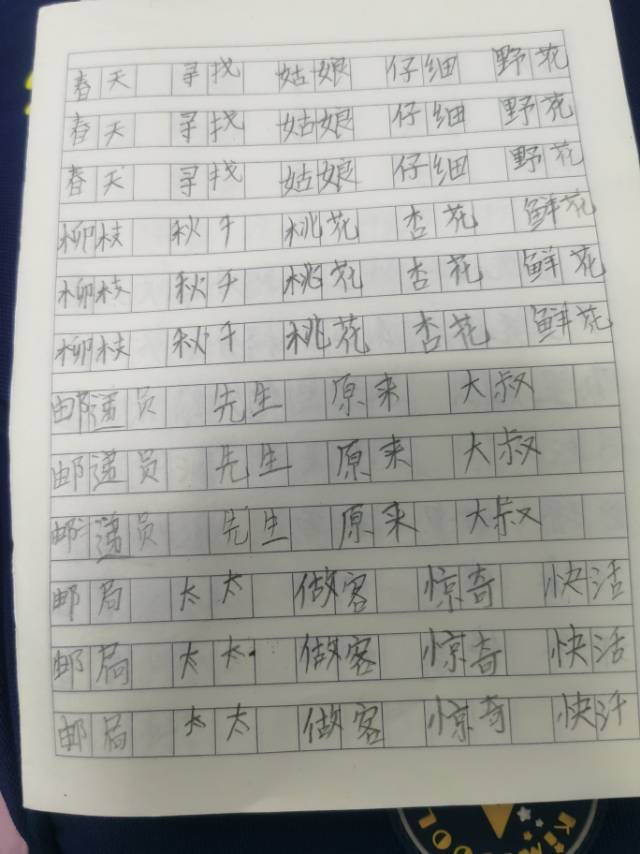 春天 寻找 姑娘 仔细 野花
春天 寻找 姑娘 仔细 野花
春天 寻找 姑娘 仔细 野花
柳枝 秋千 桃花 杏花 鲜花
柳枝 秋千 桃花 杏花 鲜花
柳枝 秋千 桃花 杏花 鲜花
邮递员 先生 原来 大叔
邮递员 先生 原来 大叔
邮递员 先生 原来 大叔
邮局 太太 做客 惊奇 快活
邮局 太太 做客 惊奇 快活
邮局 太太 做客 惊奇 快活